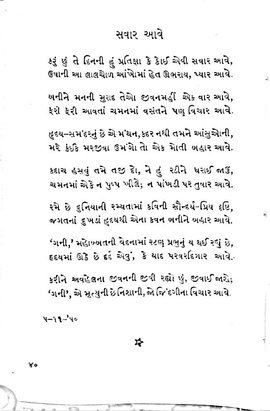 સવાર આવે
કરું છું તે દિનની હું પ્રતીક્ષા કે કોઈ એવી સવાર આવે,
ઉષાની આ લાલચોળ આંખોમાં હેત ઊભરાય, પ્યાર આવે.
બનીને મનની મુરાદ તેઓ જીવનમહીં એક વાર આવે,
ફરી ફરી આવતાં ચમનમાં વસંતને પણ વિચાર આવે.
હૃદય-સમંદરનું છે એ મંથન, કદર નથી તમને આંસુઓની,
મરે કંઈક મરજીવા ઉમંગો તો એક મોતી બહાર આવે.
કદાચ હસવું તમે તજી દો, ને હું રડીને ધરાઈ જાઉં,
ચમનમાં એકે ન પુષ્પ ખીલે; ન પાંખડી પર તુષાર આવે.
રમે છે દુનિયાની રમ્યતામાં કવિની સૌન્દર્ય-પ્રિય દૃષ્ટિ,
જગતનાં દુઃખડાં હૃદયથી એના કવન બનીને બહાર આવે.
'ગની,' મહોબ્બતની વેદનામાં રટણ પ્રભુનું ય થઈ રહ્યું છે,
હૃદયમાં ઊઠે છે દર્દ એવું, કે યાદ પરવરદિગાર આવે.
કરીને અવહેલના જીવનની જીવી રહ્યો છું, જીવાઈ જાશે;
'ગની', એ મૃત્યુની છે નિશાની, જો જિંદગીના વિચાર આવે.
૫-૧૧-'૫૦
૪૦